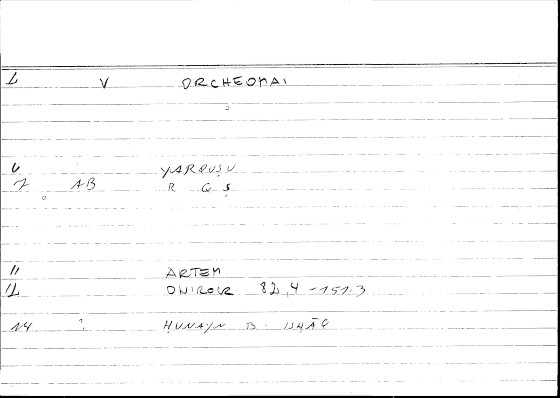 1 V ORCHEOMAI
6 YARQUṢU
7 AB R Q Ṣ
11 ARTEM
12 ONIROCR 82,4 - 151.3
14 ḤUNAYN B. ISḤĀQ